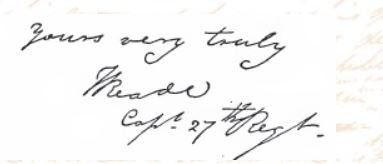 Yours very truly
Capt. 27th Regt.